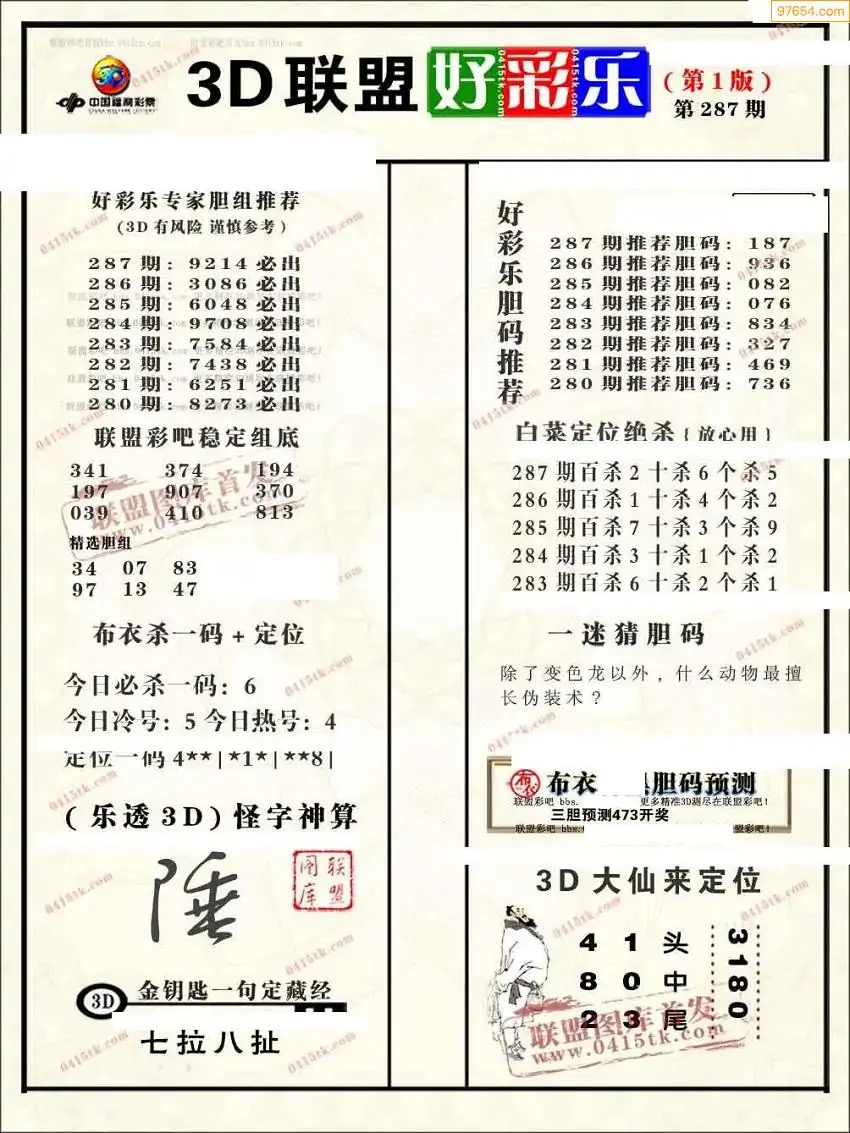 97654.com
中国福利彩票
CHINA WELFARE LOTTERY
3D联盟好彩乐
0415tk.com
(第1版)
第287期
好彩乐专家胆组推荐
(3D有风险 谨慎参考)
287期: 9214必出
286期: 3086必出
285期: 6048必出
284期: 9708必出
283期: 7584必出
282期: 7438必出
281期: 6251必出
280期: 8273必出
联盟彩吧稳定组底
341 374 194
197 907 370
039 410 813
精选胆组
34 07 83
97 13 47
布衣杀一码+定位
今日必杀一码: 6
今日冷号: 5 今日热号: 4
定位一码 4**|*1*|**8|
(乐透3D) 怪字神算
联盟图库
3D 金钥匙一句定藏经
七拉八扯
好彩乐胆码推荐
287期推荐胆码: 187
286期推荐胆码: 936
285期推荐胆码: 082
284期推荐胆码: 076
283期推荐胆码: 834
282期推荐胆码: 327
281期推荐胆码: 469
280期推荐胆码: 736
白菜定位绝杀{放心用}
287期百杀2十杀6个杀5
286期百杀1十杀4个杀2
285期百杀7十杀3个杀9
284期百杀3十杀1个杀2
283期百杀6十杀2个杀1
一迷猜胆码
除了变色龙以外, 什么动物最擅
长伪装术?
布衣 胆码预测
联盟彩吧 bbs. 更多精准3D测尽在联盟彩吧!
三胆预测473开奖
联盟彩吧 bbs. 盟彩吧!
3D大仙来定位
4 1 头
8 0 中
2 3 尾
3180
联盟图库首发
www.0415tk.com